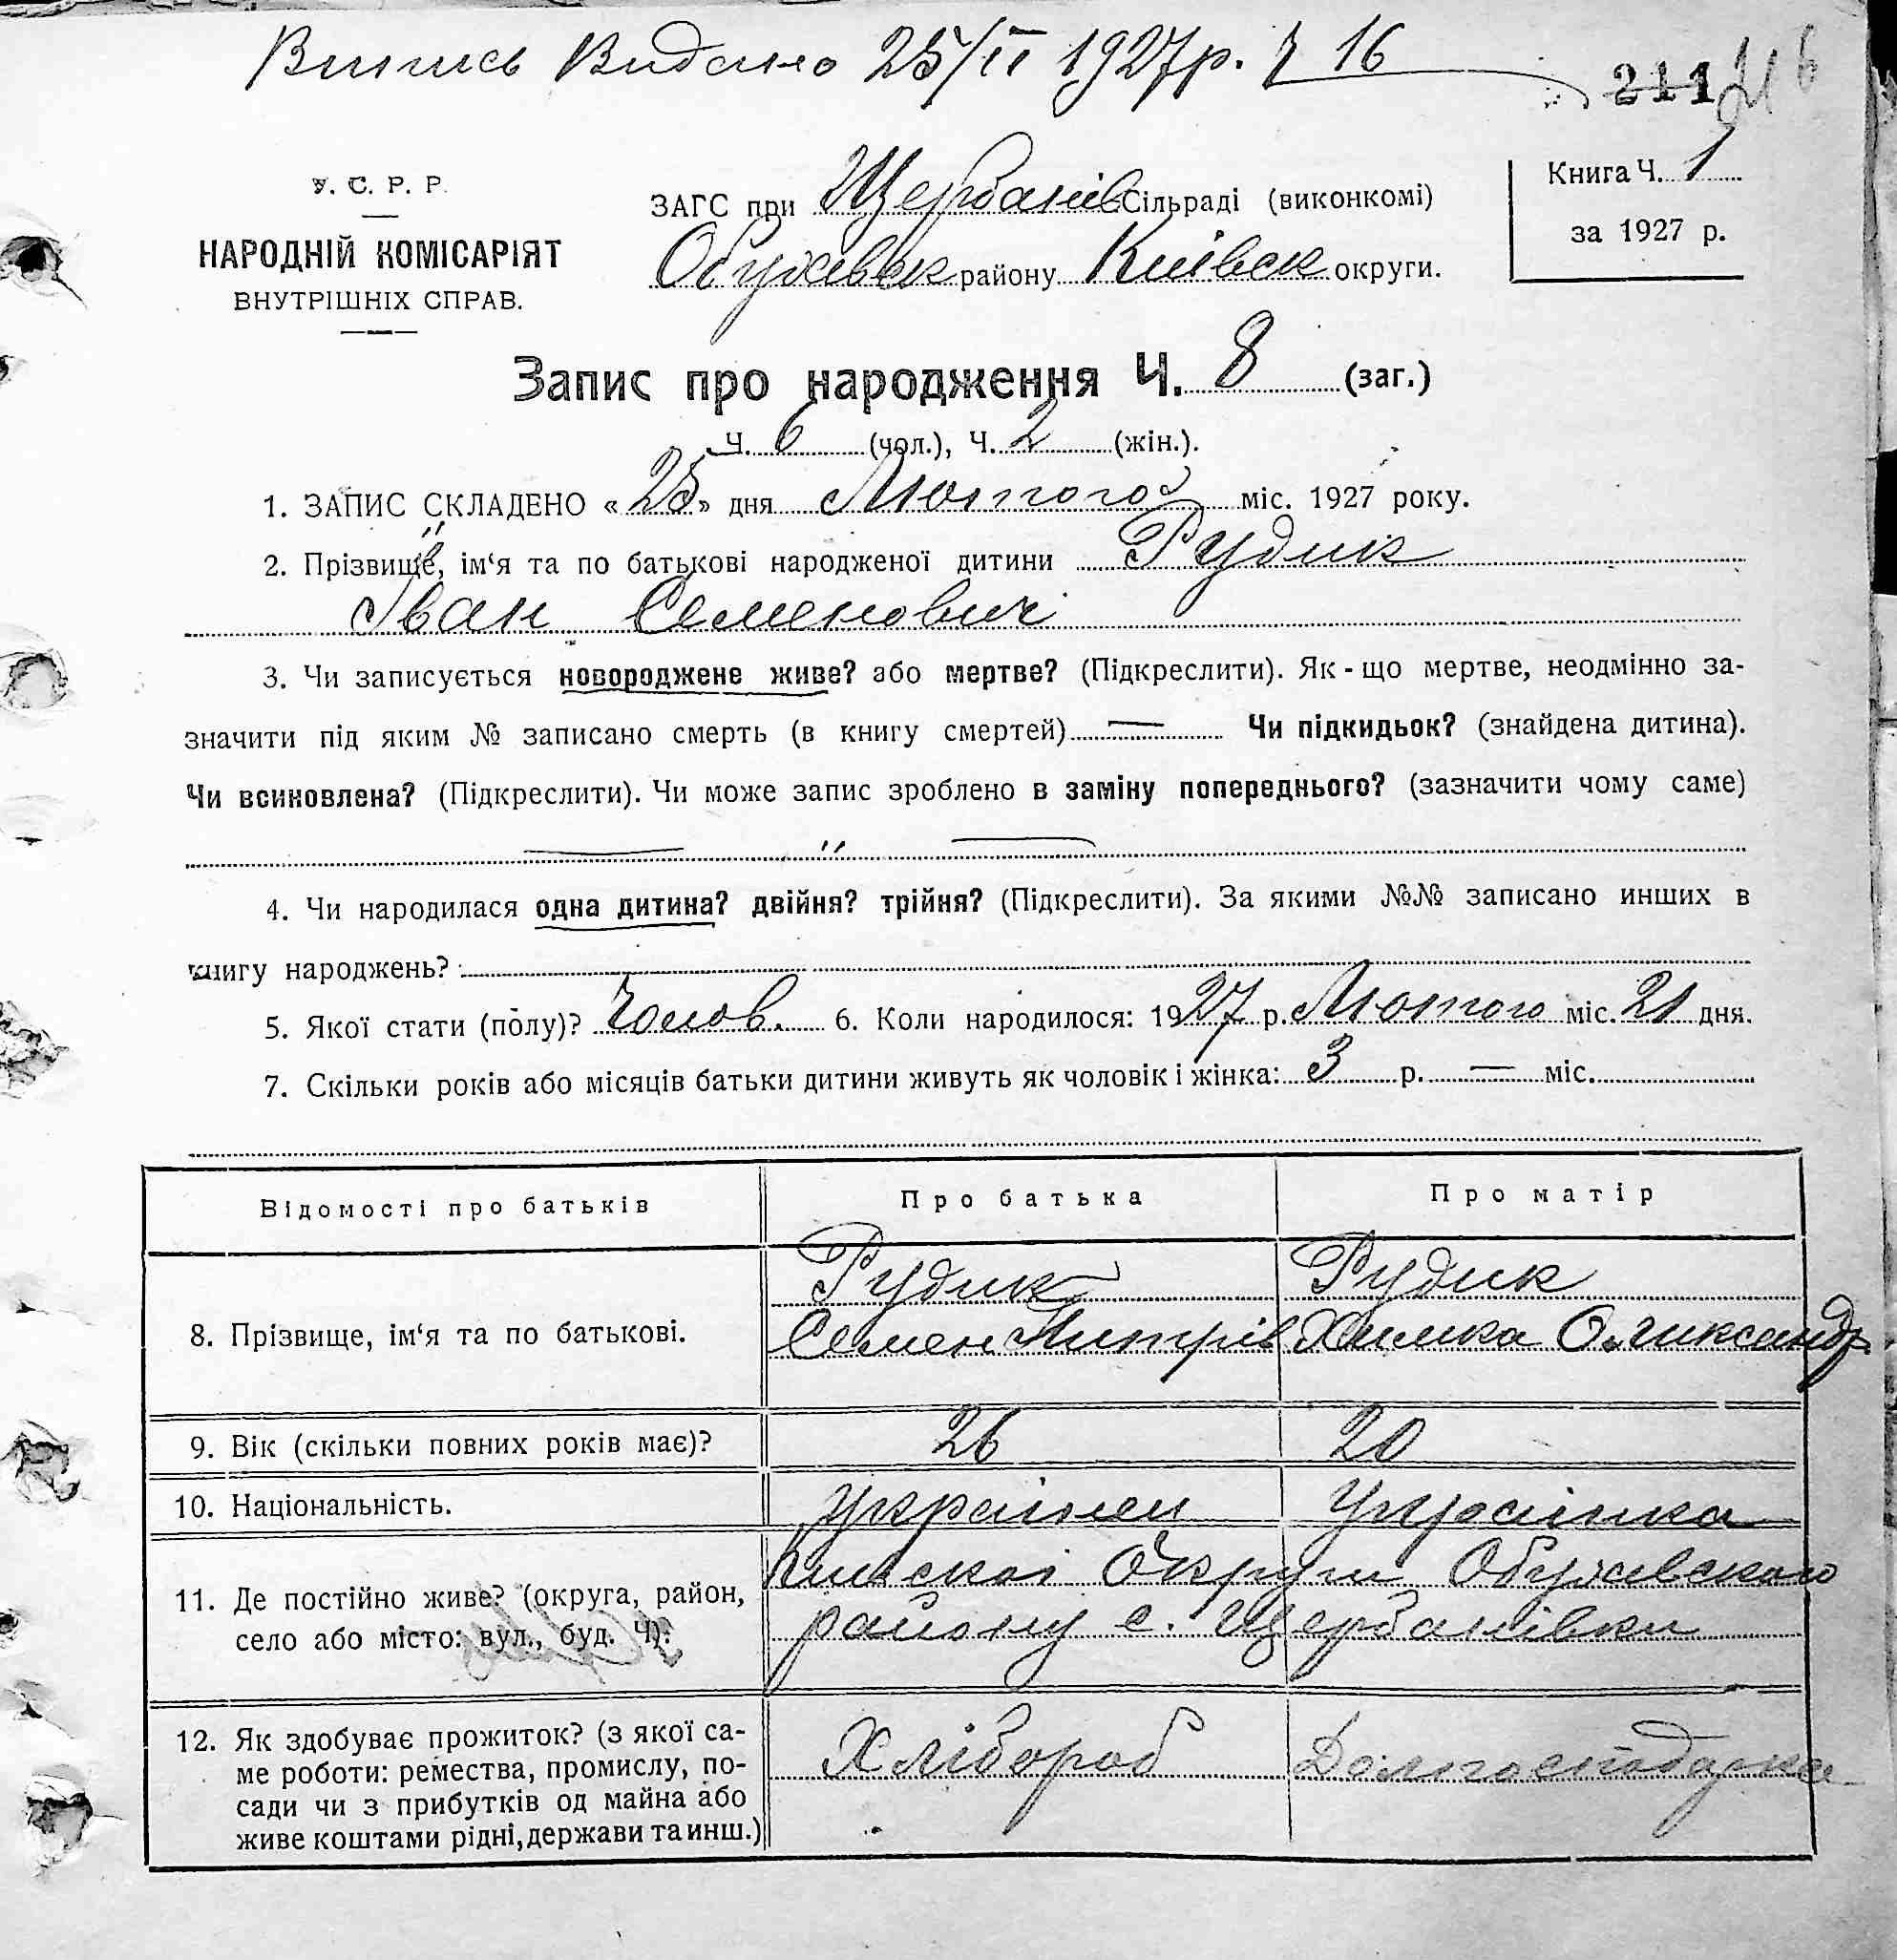 Випись Видано 25/II 1927р. Ч 16
211 216
У. С. Р. Р.
НАРОДНІЙ КОМІСАРІЯТ
ВНУТРІШНІХ СПРАВ.
ЗАГС при Щербанів Сільраді (виконкомі)
Обухівськ району Київськ округи.
Книга Ч. 1
за 1927 р.
Запис про народження Ч. 8 (заг.)
Ч. 6 (чол.), Ч. 2 (жін.).
1. ЗАПИС СКЛАДЕНО «25» дня Лютого міс. 1927 року.
2. Прізвище, ім‘я та по батькові народженої дитини Рудик
Іван Семенович
3. Чи записується новороджене живе? або мертве? (Підкреслити). Як-що мертве, неодмінно за-
значити під яким № записано смерть (в книгу смертей) — Чи підкидьок? (знайдена дитина).
Чи всиновлена? (Підкреслити). Чи може запис зроблено в заміну попереднього? (зазначити чому саме)
— „ —
4. Чи народилася одна дитина? двійня? трійня? (Підкреслити). За якими №№ записано инших в
книгу народжень?
5. Якої стати (полу)? Чолов. 6. Коли народилося: 1927 р. Лютого міс. 21 дня.
7. Скільки років або місяців батьки дитини живуть як чоловік і жінка: 3 р. — міс.
Відомості про батьків Про батька Про матір
8. Прізвище, ім‘я та по батькові.
Рудик Рудик
Семен Химка
9. Вік (скільки повних років має)? 26 20
10. Національність. Українец Українка
11. Де постійно живе? (округа, район,
село або місто: вул., буд. Ч).
Округи Обухівського
району с. Щербанівки
12. Як здобуває прожиток? (з якої са-
ме роботи: ремества, промислу, по-
сади чи з прибутків од майна або
живе коштами рідні, держави та инш.)
Хлібороб Домгосподарка